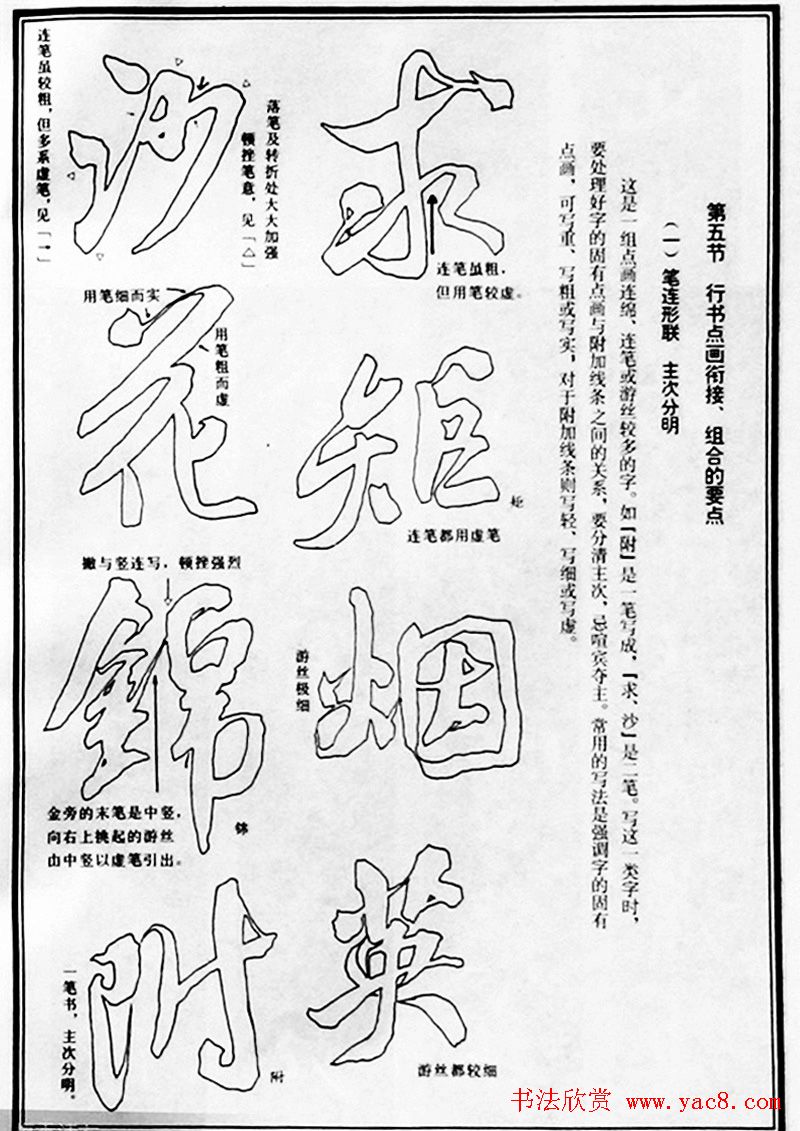 第五节　行书点画衔接、组合的要点
（一）笔连形联　主次分明
这是一组点画连绵、连笔或游丝较多的字。如「附」是一笔写成，「求、沙」是二笔。写这一类字时，
要处理好字的固有点画与附加线条之间的关系，要分清主次，忌喧宾夺主。常用的写法是强调字的固有
点画，可写重、写粗或写实，对于附加线条则写轻、写细或写虚。
求
连笔虽粗，
但用笔较虚。
矩
矩
连笔都用虚笔
烟
游丝极细
英
游丝都较细
沙
落笔及转折处大大加强
顿挫笔意，见「△」
连笔虽较粗，但多系虚笔，见「→」
花
用笔细而实
用笔粗而虚
锦
撇与竖连写，顿挫强烈
金旁的末笔是中竖，
向右上挑起的游丝
由中竖以虚笔引出。
附
附
一笔书，主次分明。
书法欣赏 www.yac8.com